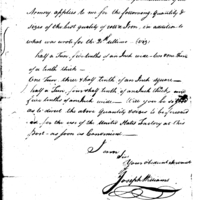 Armory applies to me for the following quantity &
sizes of the best quality of cast Iron, in addition to
what was wrote for the 3d. Ultimo (1809)
half a Ton, five tenths of an Inch wide & two & one third
of a tenth thick
One Ton, three & half tenth of an Inch square
half a Ton, four & half tenth of an Inch thick and
five tenths of an Inch wide. Will you be so good
as to direct the above quantity & sizes to be forward
ed for the use of the United States Factory at this
Port as soon as Convenient
I am
Sir
Your obedient servant
Joseph Williams